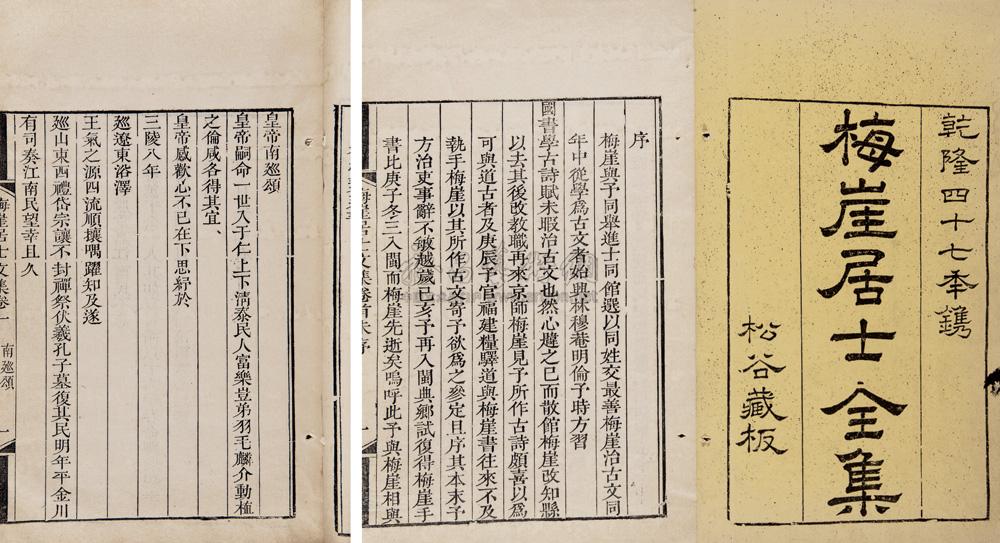 乾隆四十七年鐫
梅崖居士全集
松谷藏板
序
梅崖與予同舉進士同館選以同姓交最善梅崖治古文同
年中從學爲古文者始興林穆菴明倫予時方習
國書學古詩賦未暇治古文也然心韙之已而散館梅崖改知縣
以去其後改教職再來京師梅崖見予所作古詩頗喜以爲
可與道古者及庚辰予官福建糧驛道與梅崖書往來不及
執手梅崖以其所作古文寄予欲爲之參定且序其本末予
方治吏事辭不敏越歲己亥予再入閩典鄉試復得梅崖手
書比庚子冬三入閩而梅崖先逝矣嗚呼此予與梅崖相與
梅崖居士文集卷首 朱序
皇帝南廵頌
皇帝嗣命一世入于仁上下清泰民人富樂豈弟羽毛麟介動植
之倫咸各得其宜
皇帝感歡心不已在下思紓於
三陵八年
廵遼東浴澤
王氣之源四流順攘喁躍知及遂
廵山東西禮岱宗讓不封禪祭伏羲孔子墓復其民明年平金川
有司奏江南民望幸且久
梅崖居士文集卷一 南廵頌 一